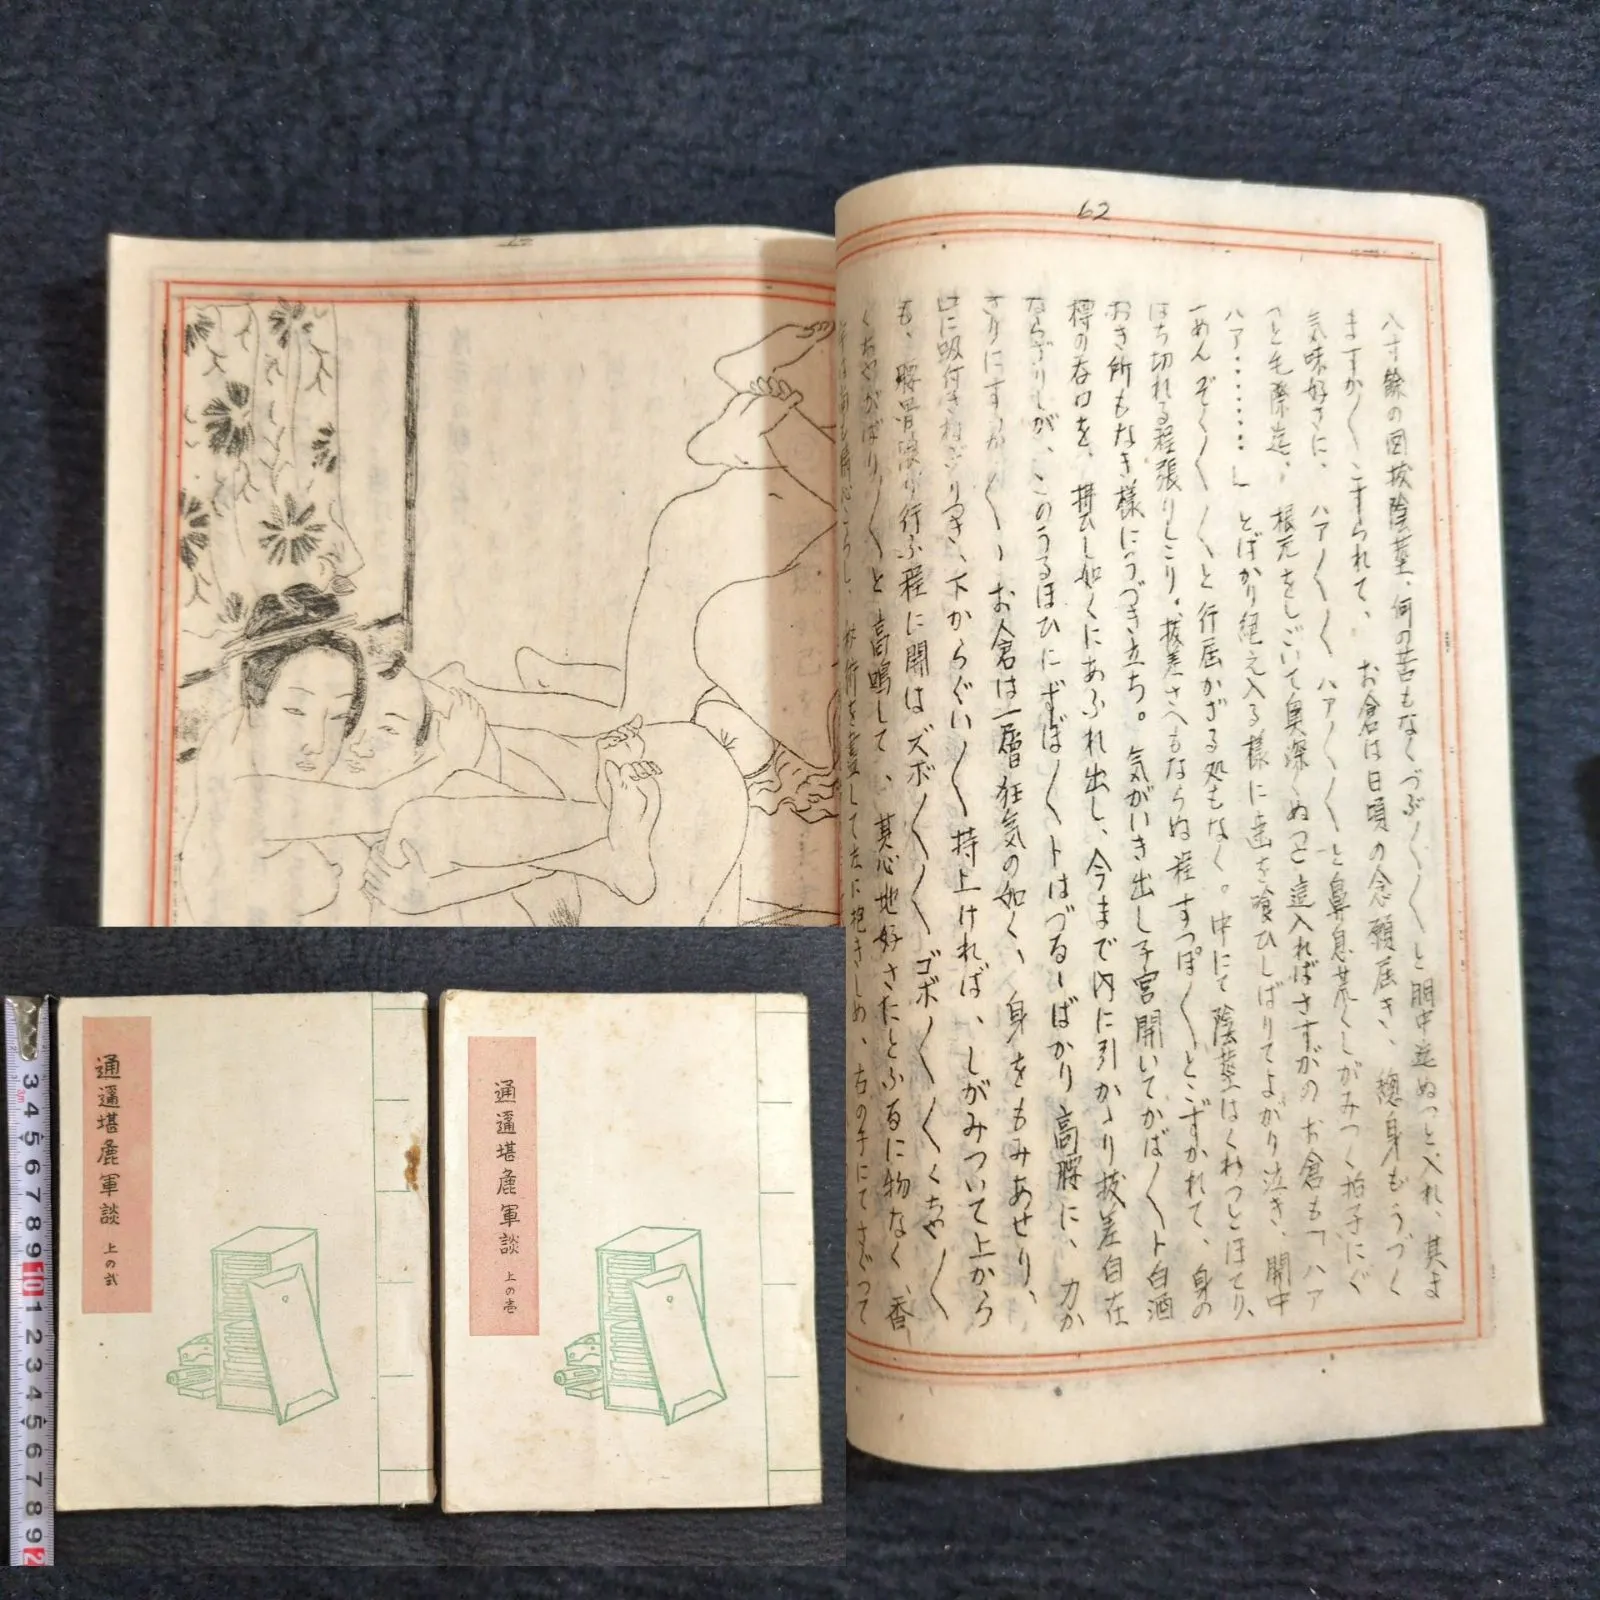 通邇堪麁軍談 上の弐
通邇堪麁軍談 上の壱
62
八寸餘の図抜陰莖、何の苦もなくづぶ〱〱と膣中迄ぬっと入れ、其ま
ますか〱こすられて、お倉は日頃の念願届き、總身もうづく
気味好さに、ハア〱〱ハア〱〱と鼻息荒くしがみつく拍子にぐ
っと毛際迄、根元をしごいて奥深くぬっと這入ればさすがのお倉も「ハア
ハア………」とばかり絶え入る様に歯を喰ひしばりてよがり泣き、開中
一めんぞく〱〱と行届かざる処もなく。中にて陰莖はくわっとほてり、
はち切れる程張りしこり。抜差さへもならぬ程すっぽ〱とこずかれて、身の
おき所もなき様にうづき立ち。気がいき出し子宮開いてかば〱ト白酒
樽の呑口を、し如くにあふれ出し、今まで内に引かゝり抜差自在
ならざりしが、このうるほひにずぼ〱トはづるゝばかり高腰に、力か
ぎりにすっか〱、お倉は一層狂気の如く、身をもみあせり、
口に吸付きねぢりつき、下からぐい〱持上ければ、しがみついて上から
も、腰骨限り行ふ程に開はズボ〱〱ゴボ〱〱くちゃ〱
くちゃがばり〱と高鳴して、其心地好さたとふるに物なく、香
秘術を盡して左に抱きしめ、右の手にてさぐって
3 4 5 6 7 8 9 10 1 2 3 4 5 6 7 8 9 2